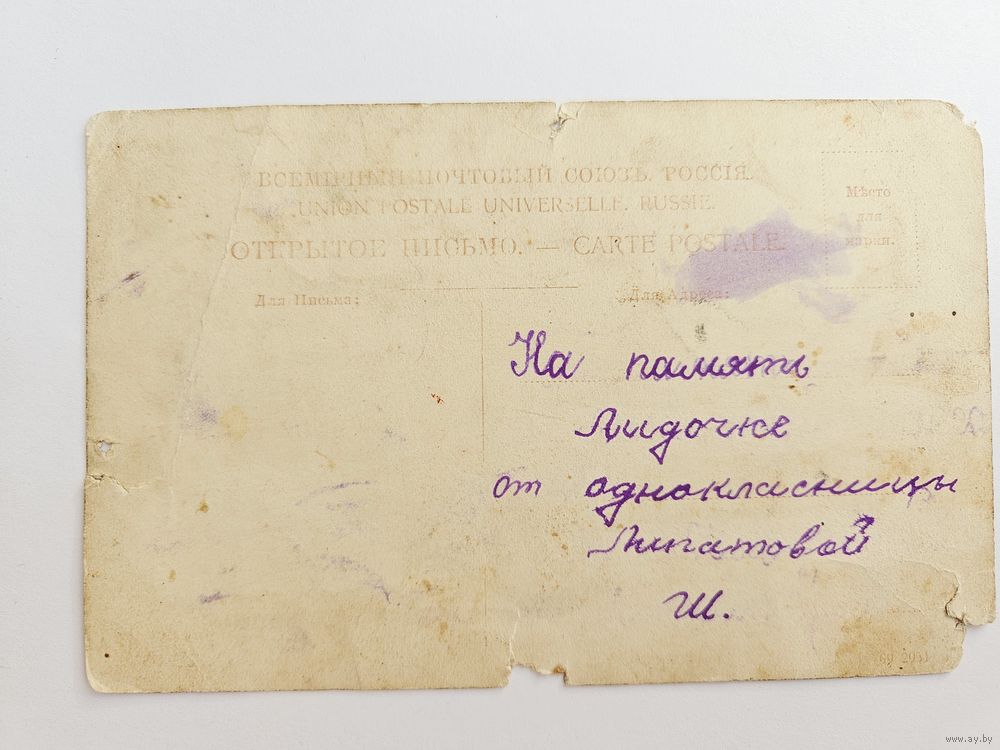 ВСЕМІРНЫЙ ПОЧТОВЫЙ СОЮЗЪ. РОССІЯ.
UNION POSTALE UNIVERSELLE. RUSSIE.
ОТКРЫТОЕ ПИСЬМО. — CARTE POSTALE.
Мѣсто
для
марки.
Для Письма:
Для Адреса:
На память
Лидочке
от однокласницы
Липатовой
Ш.
www.ay.by